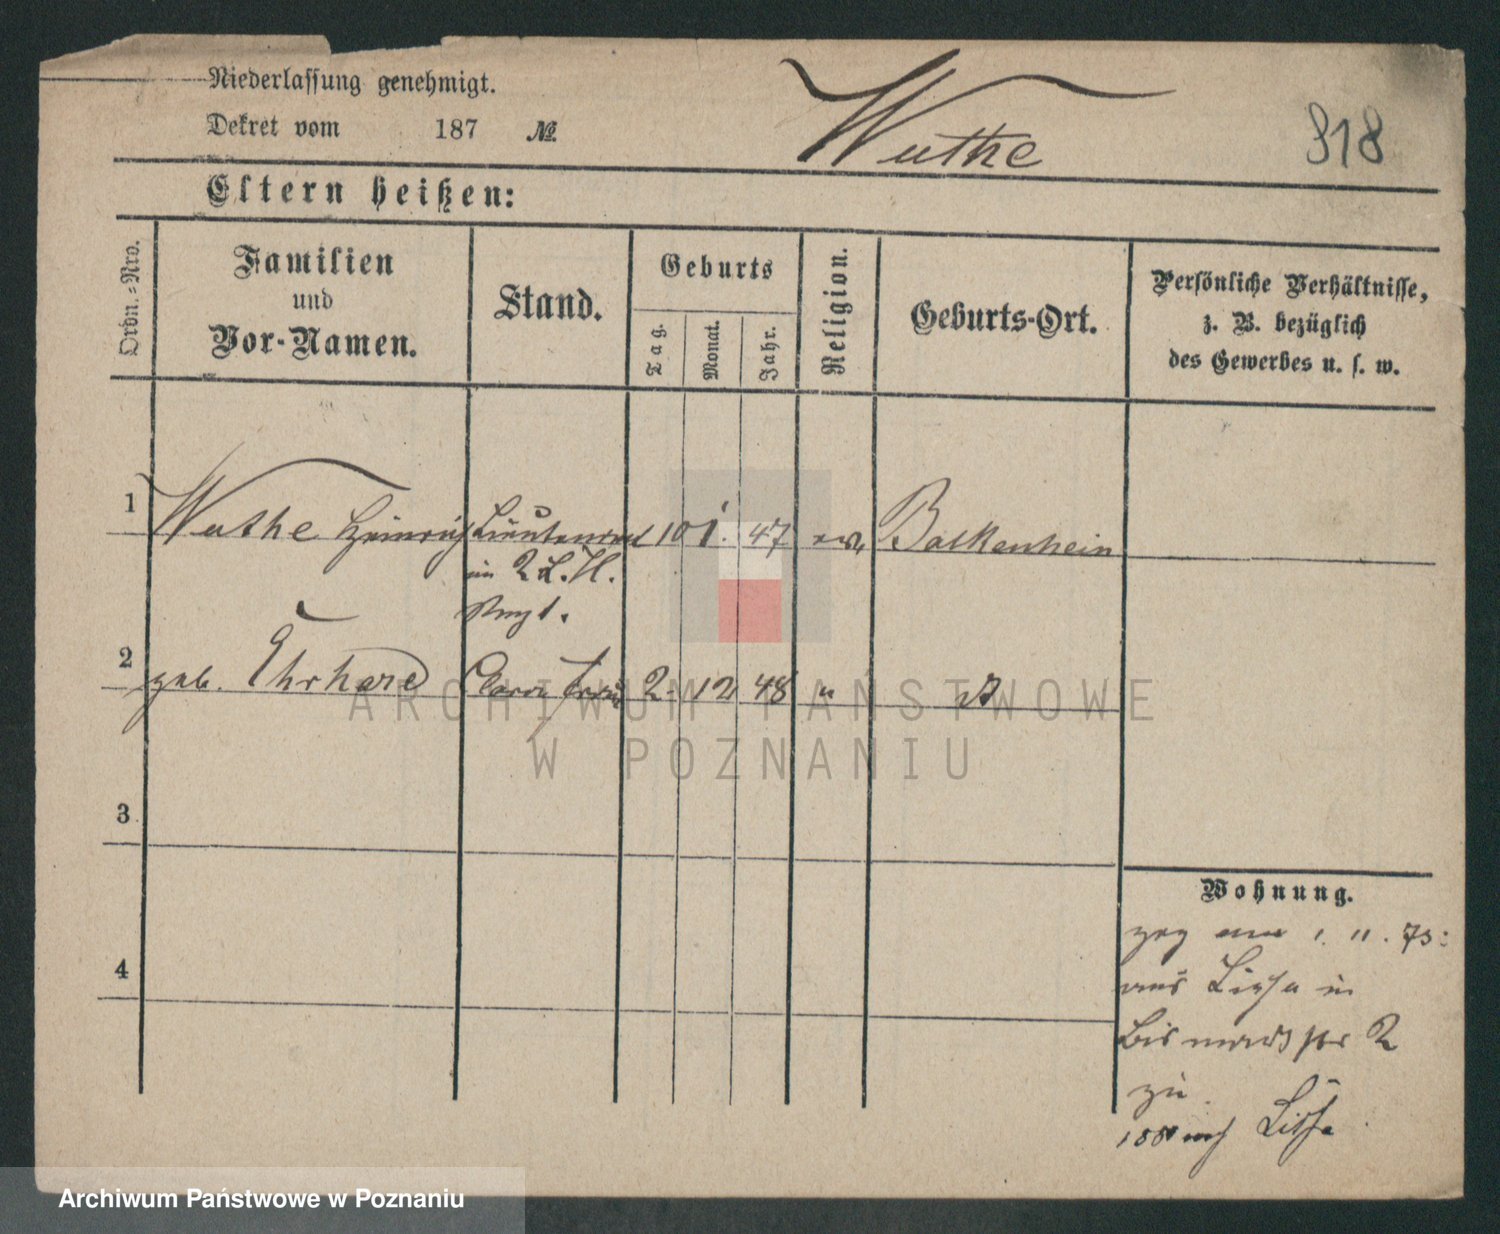 Niederlassung genehmigt.
Dekret vom 187 № Wuthe 318
Eltern heißen:
Ordn.-Nro. Familien und Vor-Namen. Stand. Geburts Tag. Monat. Jahr. Religion. Geburts-Ort. Persönliche Verhältnisse, z. B. bezüglich des Gewerbes u. s. w.
1 Wuthe Heinrich Lieutenant 10 1. 47 ev. Bolkenhein
im 2 L. H.
Regt.
2 geb. Ehrhard Clara Frau 2. 12 48 "
3
Wohnung.
zog am 1. 11. 73:
4
aus Lissa in
Bismarckstr 2
zu.
nach Lissa
ARCHIWUM PAŃSTWOWE
W POZNANIU
Archiwum Państwowe w Poznaniu